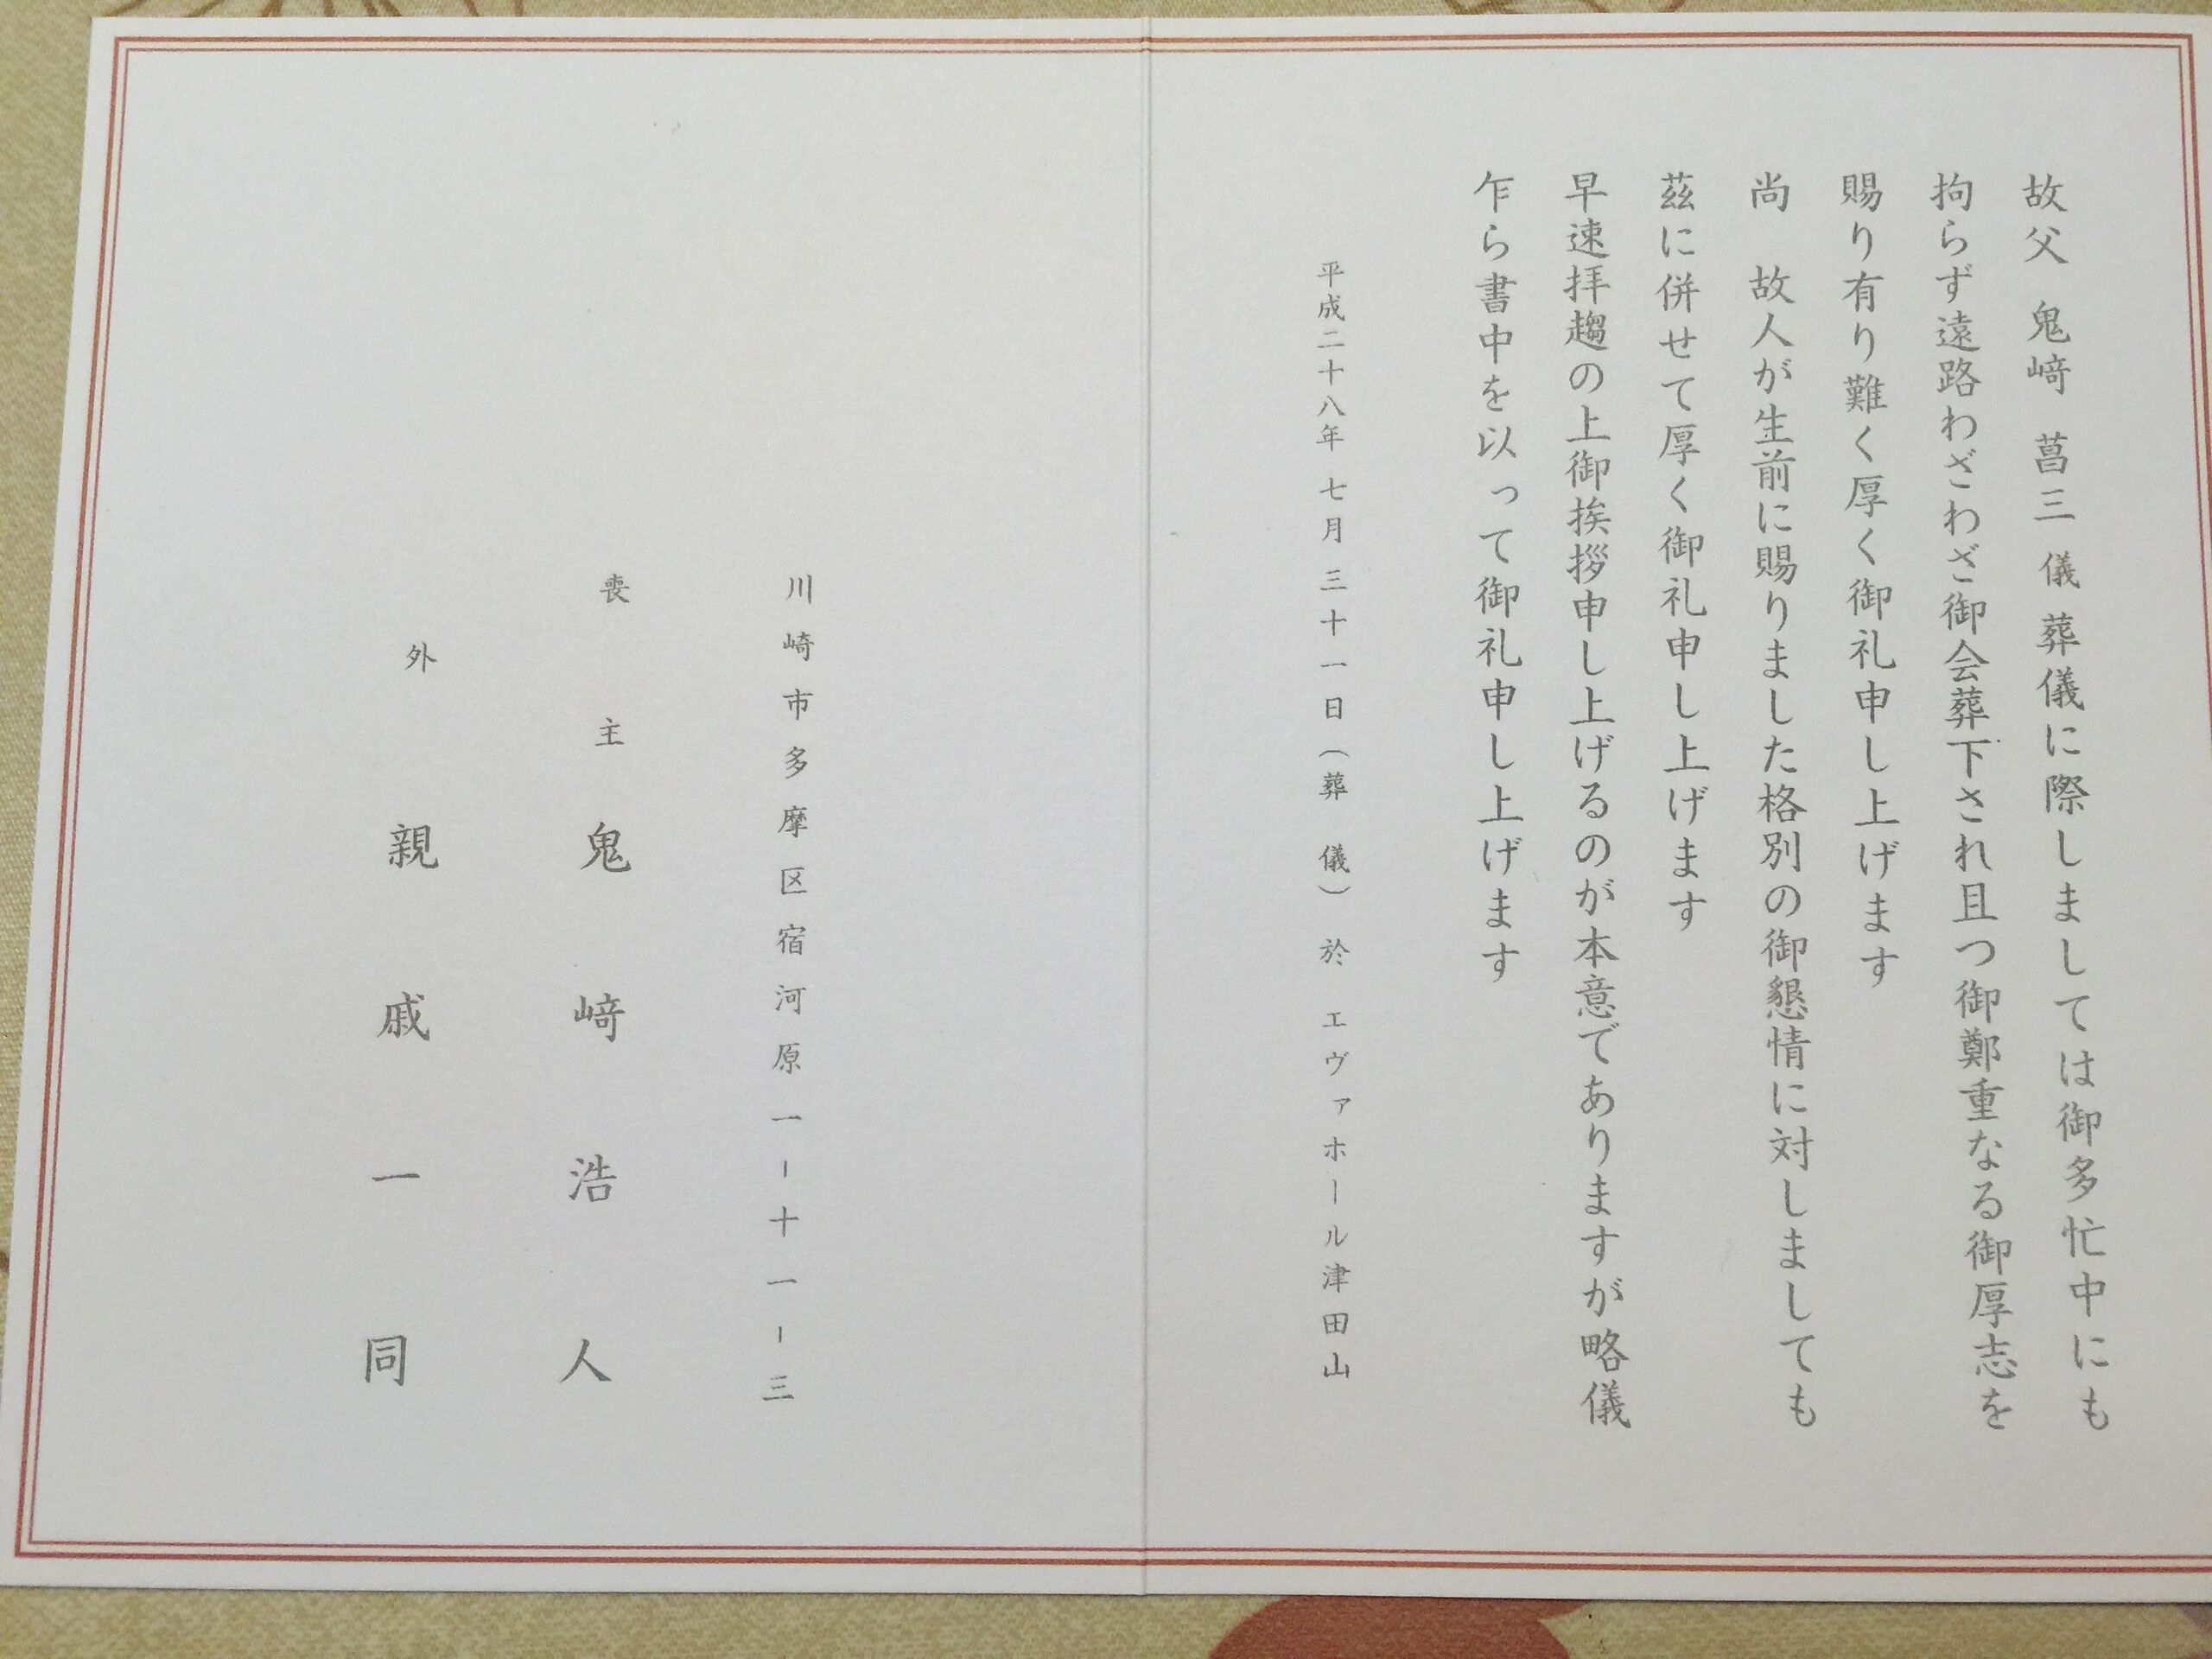 故父 鬼﨑 菖三 儀 葬儀に際しましては御多忙中にも
拘らず遠路わざわざ御会葬下され且つ御鄭重なる御厚志を
賜り有り難く厚く御礼申し上げます
尚 故人が生前に賜りました格別の御懇情に対しましても
茲に併せて厚く御礼申し上げます
早速拝趨の上御挨拶申し上げるのが本意でありますが略儀
乍ら書中を以って御礼申し上げます
平成二十八年 七月 三十一日(葬 儀) 於 エヴァホール津田山
川崎市多摩区宿河原一-十一-三
喪 主 鬼﨑浩人
外 親戚一同